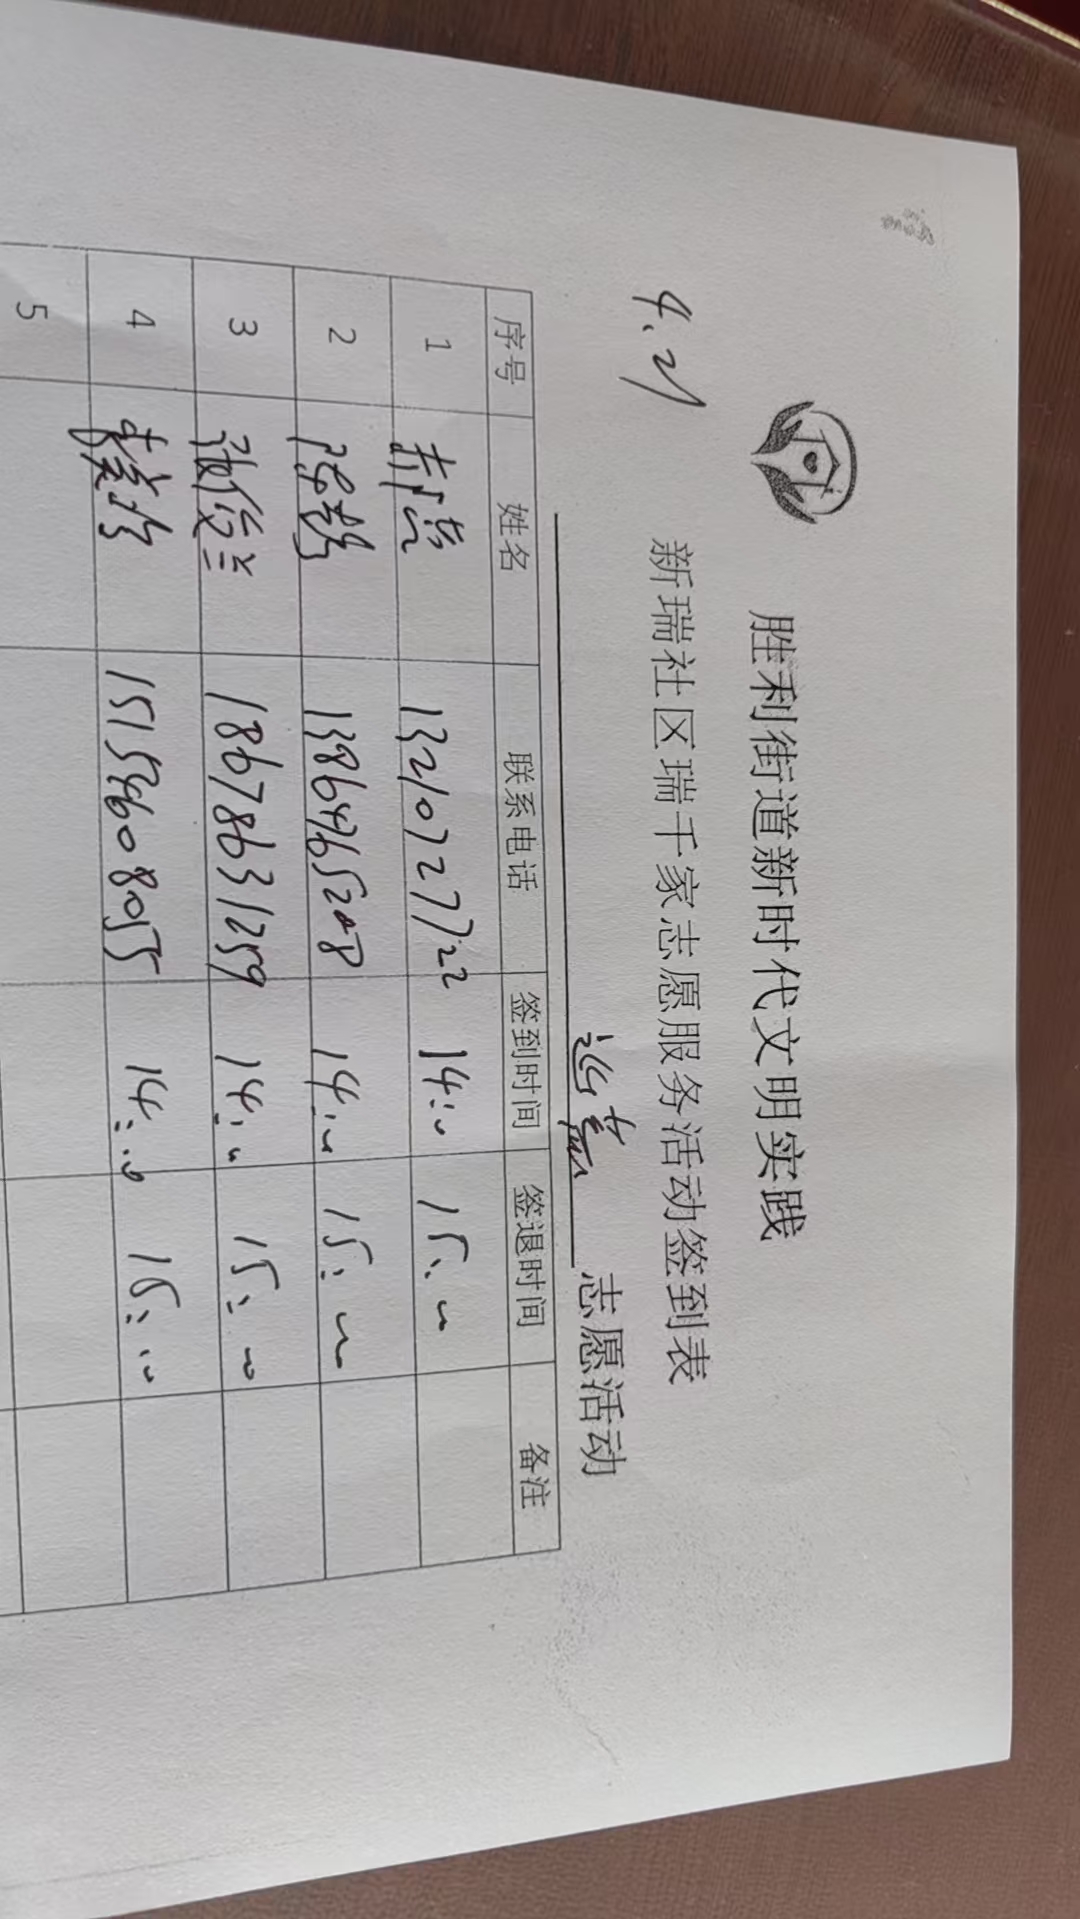 胜利街道新时代文明实践
新瑞社区瑞千家志愿服务活动签到表
4.21
巡查 志愿活动
序号 姓名 联系电话 签到时间 签退时间 备注
1 13210727722 14:00 15:00
2 13864765208 14:00 15:00
3 张俊兰 18678631259 14:00 15:00
4 15155608055 14:00 15:00
5